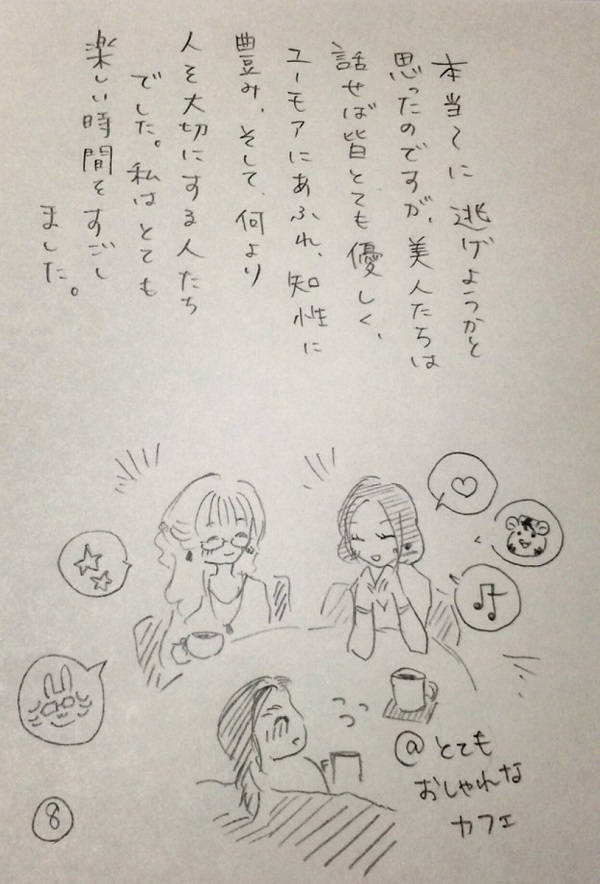 本当〜に逃げようかと
思ったのですが、美人たちは
話せば皆とても優しく、
ユーモアにあふれ、知性に
豊み、そして、何より
人を大切にする人たち
でした。私はとても
楽しい時間をすごし
ました。
@とても
おしゃれな
カフェ
8